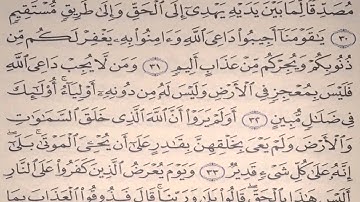 مُصَدِّقًا لِّمَا بَيْنَ يَدَيْهِ يَهْدِىٓ إِلَى ٱلْحَقِّ وَإِلَىٰ طَرِيقٍ مُّسْتَقِيمٍ
٣٠ يَٰقَوْمَنَآ أَجِيبُوا۟ دَاعِىَ ٱللَّهِ وَءَامِنُوا۟ بِهِۦ يَغْفِرْ لَكُم مِّن
ذُنُوبِكُمْ وَيُجِرْكُم مِّنْ عَذَابٍ أَلِيمٍ ٣١ وَمَن لَّا يُجِبْ دَاعِىَ ٱللَّهِ
فَلَيْسَ بِمُعْجِزٍ فِى ٱلْأَرْضِ وَلَيْسَ لَهُۥ مِن دُونِهِۦٓ أَوْلِيَآءُ ۚ أُو۟لَٰٓئِكَ
فِى ضَلَٰلٍ مُّبِينٍ ٣٢ أَوَلَمْ يَرَوْا۟ أَنَّ ٱللَّهَ ٱلَّذِى خَلَقَ ٱلسَّمَٰوَٰتِ
وَٱلْأَرْضَ وَلَمْ يَعْىَ بِخَلْقِهِنَّ بِقَٰدِرٍ عَلَىٰٓ أَن يُحْۦِىَ ٱلْمَوْتَىٰ ۚ بَلَىٰٓ
إِنَّهُۥ عَلَىٰ كُلِّ شَىْءٍ قَدِيرٌ ٣٣ وَيَوْمَ يُعْرَضُ ٱلَّذِينَ كَفَرُوا۟ عَلَى ٱلنَّارِ
أَلَيْسَ هَٰذَا بِٱلْحَقِّ ۖ قَالُوا۟ بَلَىٰ وَرَبِّنَا ۚ قَالَ فَذُوقُوا۟ ٱلْعَذَابَ بِمَا